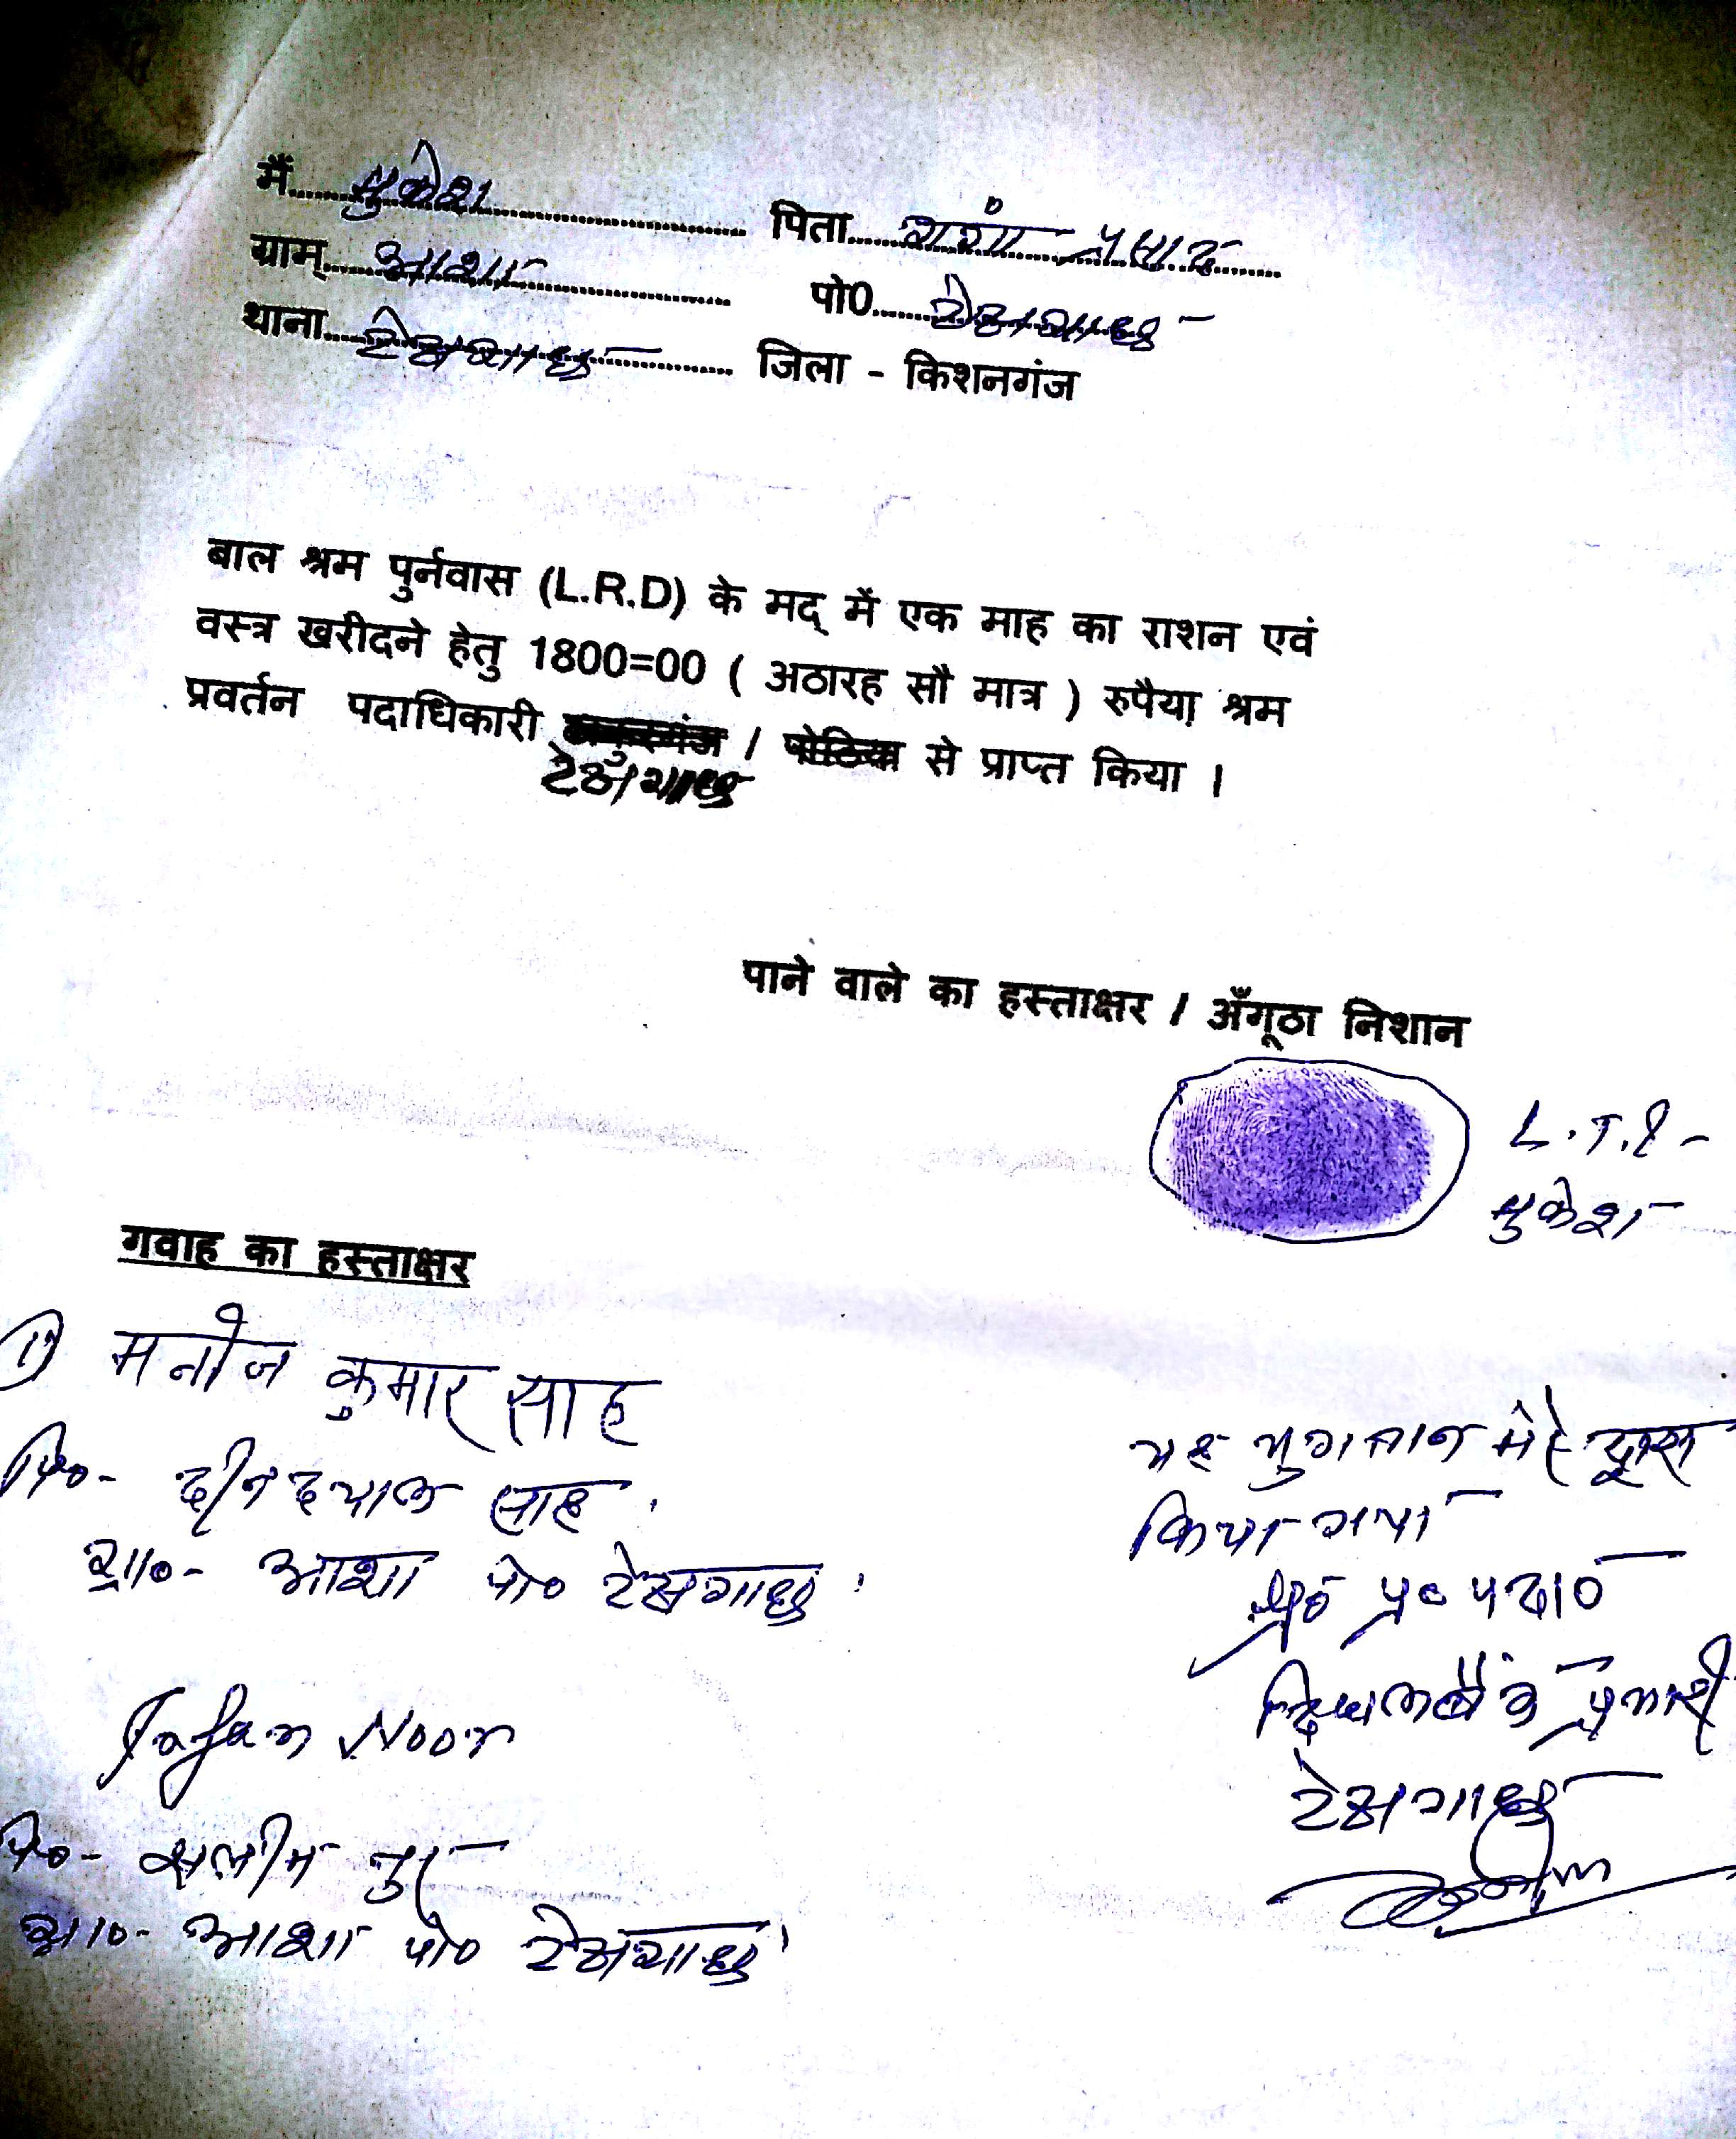 मैं......मुकेश...... पिता......गंगा प्रसाद......
ग्राम्......आशा...... पो0......टेढ़ागाछ
थाना......टेढ़ागाछ...... जिला - किशनगंज
बाल श्रम पुर्नवास (L.R.D) के मद् में एक माह का राशन एवं
वस्त्र खरीदने हेतु 1800=00 ( अठारह सौ मात्र ) रुपैया श्रम
प्रवर्तन पदाधिकारी ठाकुरगंज / पोठिया से प्राप्त किया ।
टेढ़ागाछ
पाने वाले का हस्ताक्षर / अँगूठा निशान
L.T.I -
मुकेश
गवाह का हस्ताक्षर
1) मनोज कुमार साह
पि०- दीनदयाल साह
ग्रा०- आशा पो० टेढ़ागाछ
Jafar Noor
पि०- सलीम नुर
ग्रा०- आशा पो० टेढ़ागाछ
यह भुगतान मेरे द्वारा
किया गया
श्र० प्र० पदा०
प्रभारी
टेढ़ागाछ